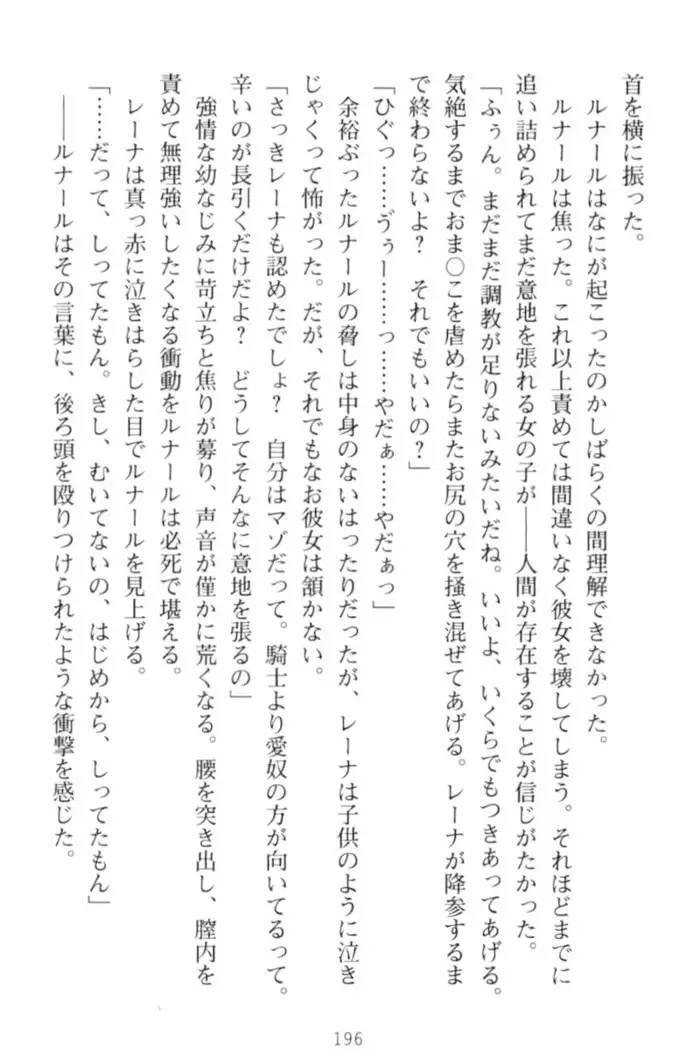 首を横に振った。
ルナールはなにが起こったのかしばらくの間理解できなかった。
ルナールは焦った。これ以上責めては間違いなく彼女を壊してしまう。それほどまでに
追い詰められてまだ意地を張れる女の子が――人間が存在することが信じがたかった。
「ふぅん。まだまだ調教が足りないみたいだね。いいよ、いくらでもつきあってあげる。
気絶するまでおま〇こを虐めたらまたお尻の穴を掻き混ぜてあげる。レーナが降参するま
で終わらないよ？　それでもいいの？」
「ひぐっ……ゔぅー……っ……やだぁ……やだぁっ」
余裕ぶったルナールの脅しは中身のないはったりだったが、レーナは子供のように泣き
じゃくって怖がった。だが、それでもなお彼女は頷かない。
「さっきレーナも認めたでしょ？　自分はマゾだって。騎士より愛奴の方が向いてるって。
辛いのが長引くだけだよ？　どうしてそんなに意地を張るの」
強情な幼なじみに苛立ちと焦りが募り、声音が僅かに荒くなる。腰を突き出し、膣内を
責めて無理強いしたくなる衝動をルナールは必死で堪える。
レーナは真っ赤に泣きはらした目でルナールを見上げる。
「……だって、しってたもん。きし、むいてないの、はじめから、しってたもん」
――ルナールはその言葉に、後ろ頭を殴りつけられたような衝撃を感じた。
196